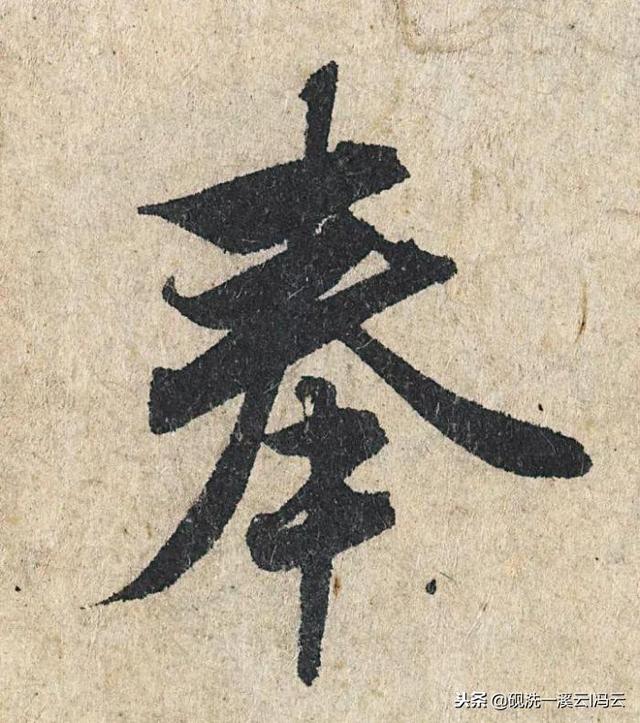 奉
头条 @砚洗一溪云I冯云